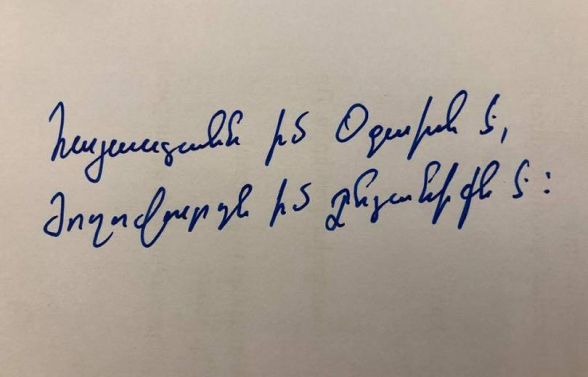 Հայաստանն իմ Օջախն է,
Ժողովուրդն իմ ընտանիքն է: